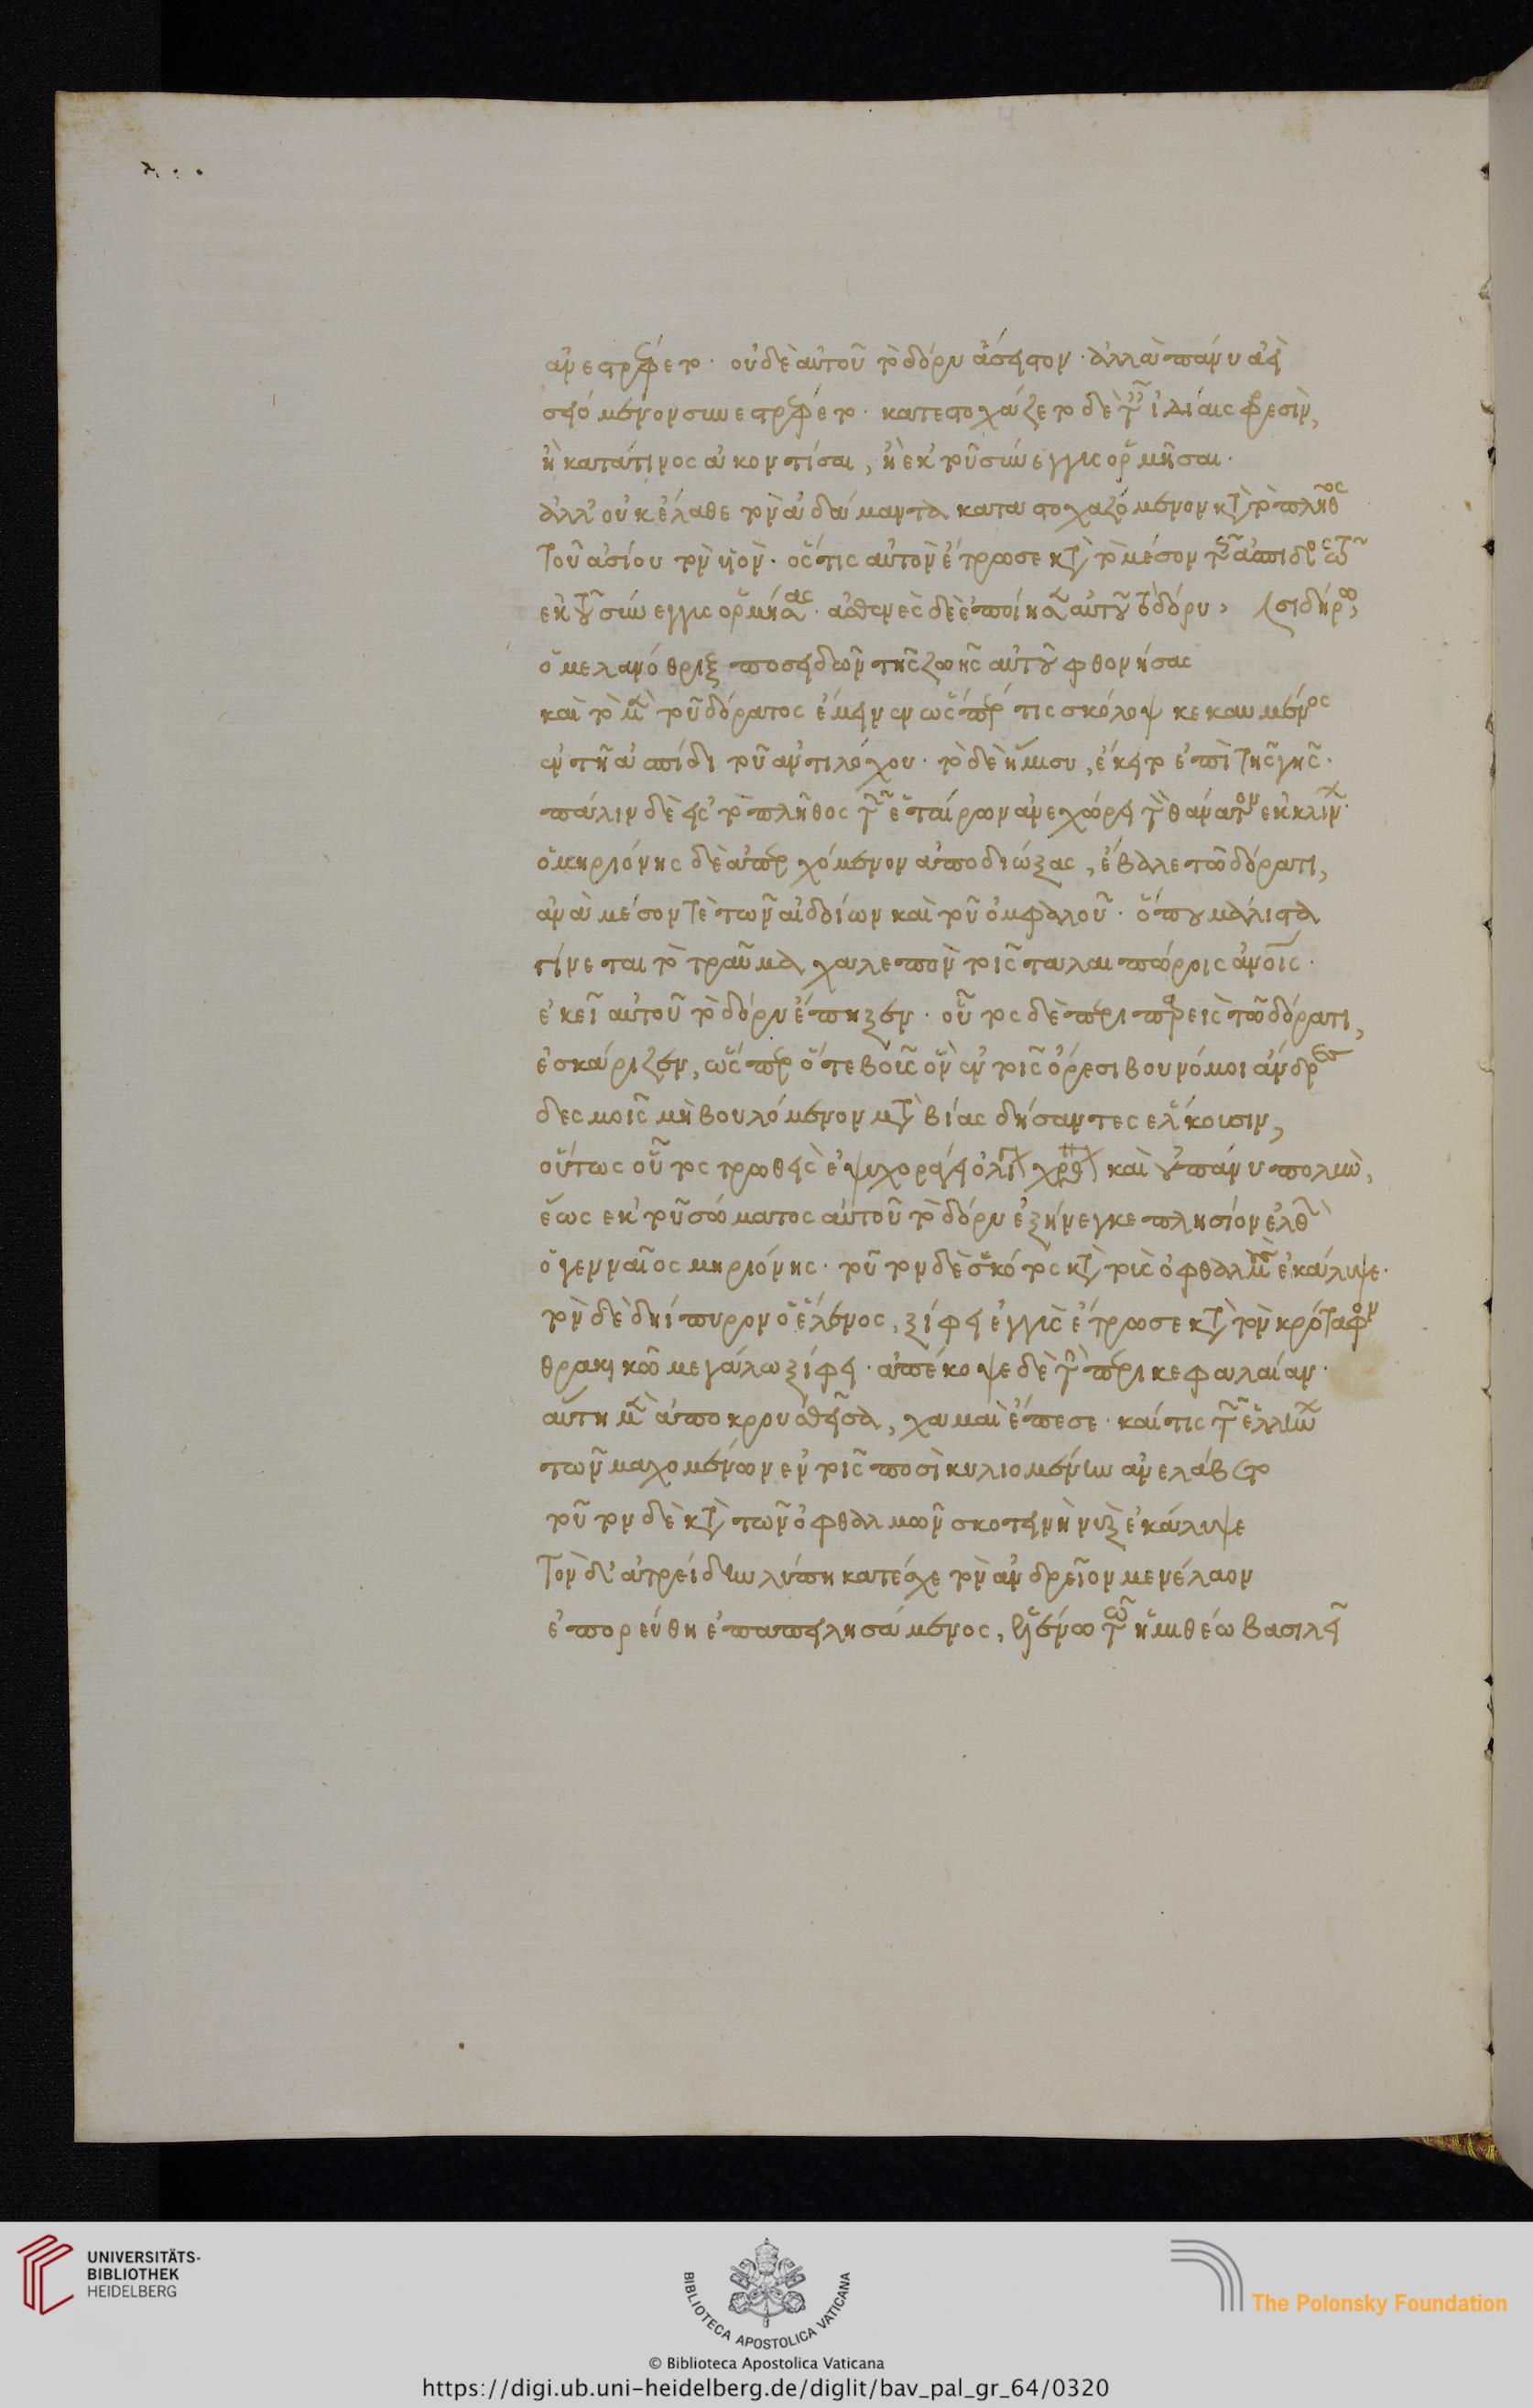 ἀνεστρέφετο· οὐδὲ αὐτοῦ τὸ δόρυ ἄσειστον· ἀλλὰ πάνυ ἀεὶ
σειόμενον συνεστρέφετο· κατεστοχάζετο δὲ ταῖς ἰδίαις φρεσὶν,
ἢ κατάτινος ἀκοντίσαι, ἢ ἐκ τοῦ σύνεγγυς ὁρμῆσαι·
ἀλλ' οὐκ ἔλαθε τὸν ἀδάμαντα καταστοχαζόμενον κατὰ τὸ πλῆθος
τοῦ ἀσίου τὸν υἱὸν· ὅστις αὐτὸν ἔτρωσε κατὰ τὸ μέσον τῆς ἀσπίδος τῶ
ἐκ τοῦ σύνεγγυς ὁρμήσας· ἀσθενὲς δὲ ἐποίησεν αὐτοῦ τὸ δόρυ, (σιδήρω,
ὁ μελανόθριξ ποσειδῶν τῆς ζωῆς αὐτοῦ φθονήσας
καὶ τὸ μὲν τοῦ δόρατος ἔμεινεν ὥσπερ τις σκόλοψ κεκαυμένος
ἐν τῆ ἀσπίδι τοῦ ἀντιλόχου· τὸ δὲ ἥμισυ, ἔκειτο ἐπὶ τῆς γῆς·
πάλιν δὲ εἰς τὸ πλῆθος τῶν ἑταίρων ἀνεχώρει τὸν θάνατον ἐκκλίνων·
ὁ μηριόνης δὲ ἀπερχόμενον ἀποδιώξας, ἔβαλε τῶ δόρατι,
ἀνὰ μέσον τὲ τῶν αἰδοίων καὶ τοῦ ὀμφαλοῦ· ὅπου μάλιστα
γίνεται τὸ τραῦμα χαλεπὸν τοῖς ταλαιπώροις ἀνοις·
ἐκεῖ αὐτοῦ τὸ δόρυ ἔπηξεν· οὗτος δὲ περιπαρεὶς τῶ δόρατι,
ἐσκάριζεν, ὥσπερ ὅτε βοῦς ὃν ἐν τοῖς ὄρεσι βουνόμοι ἄνδρες
δεσμοῖς μὴ βουλόμενον μετὰ βίας δήσαντες ἕλκουσιν,
οὕτως οὗτος τρωθεὶς ἐψυχορράγει ὀλίγον χρόνον καὶ οὐ πάνυ πολὺν,
ἕως ἐκ τοῦ σώματος αὐτοῦ τὸ δόρυ ἐξήνεγκε πλησίον ἐλθὼν
ὁ γενναῖος μηριόνης· τοῦτον δὲ σκότος κατὰ τοὺς ὀφθαλμοὺς ἐκάλυψε·
τὸν δὲ δηίπυρον ὁ ἕλενος, ξίφει ἐγγὺς ἔτρωσε κατὰ τὸν κρόταφον
θρακικῶ μεγάλω ξίφει· ἀπέκοψε δὲ τὴν περικεφαλαίαν·
αὕτη μὲν ἀποκρουσθεῖσα, χαμαὶ ἔπεσε· καί τις τῶν ἑλλήνων
τῶν μαχομένων ἐν τοῖς ποσὶ κυλιομένην ἀνελάβετο
τοῦτον δὲ κατὰ τῶν ὀφθαλμῶν σκοτεινὴ νὺξ ἐκάλυψε
τὸν δ' ἀτρείδην λύπη κατέσχε τὸν ἀνδρεῖον μενέλαον
ἐπορεύθη ἐπαπειλησάμενος, ἑλένω τῶ ἡμιθέω βασιλεῖ
UNIVERSITÄTS-
BIBLIOTHEK
HEIDELBERG
BIBLIOTECA APOSTOLICA VATICANA
The Polonsky Foundation
© Biblioteca Apostolica Vaticana
https://digi.ub.uni-heidelberg.de/diglit/bav_pal_gr_64/0320